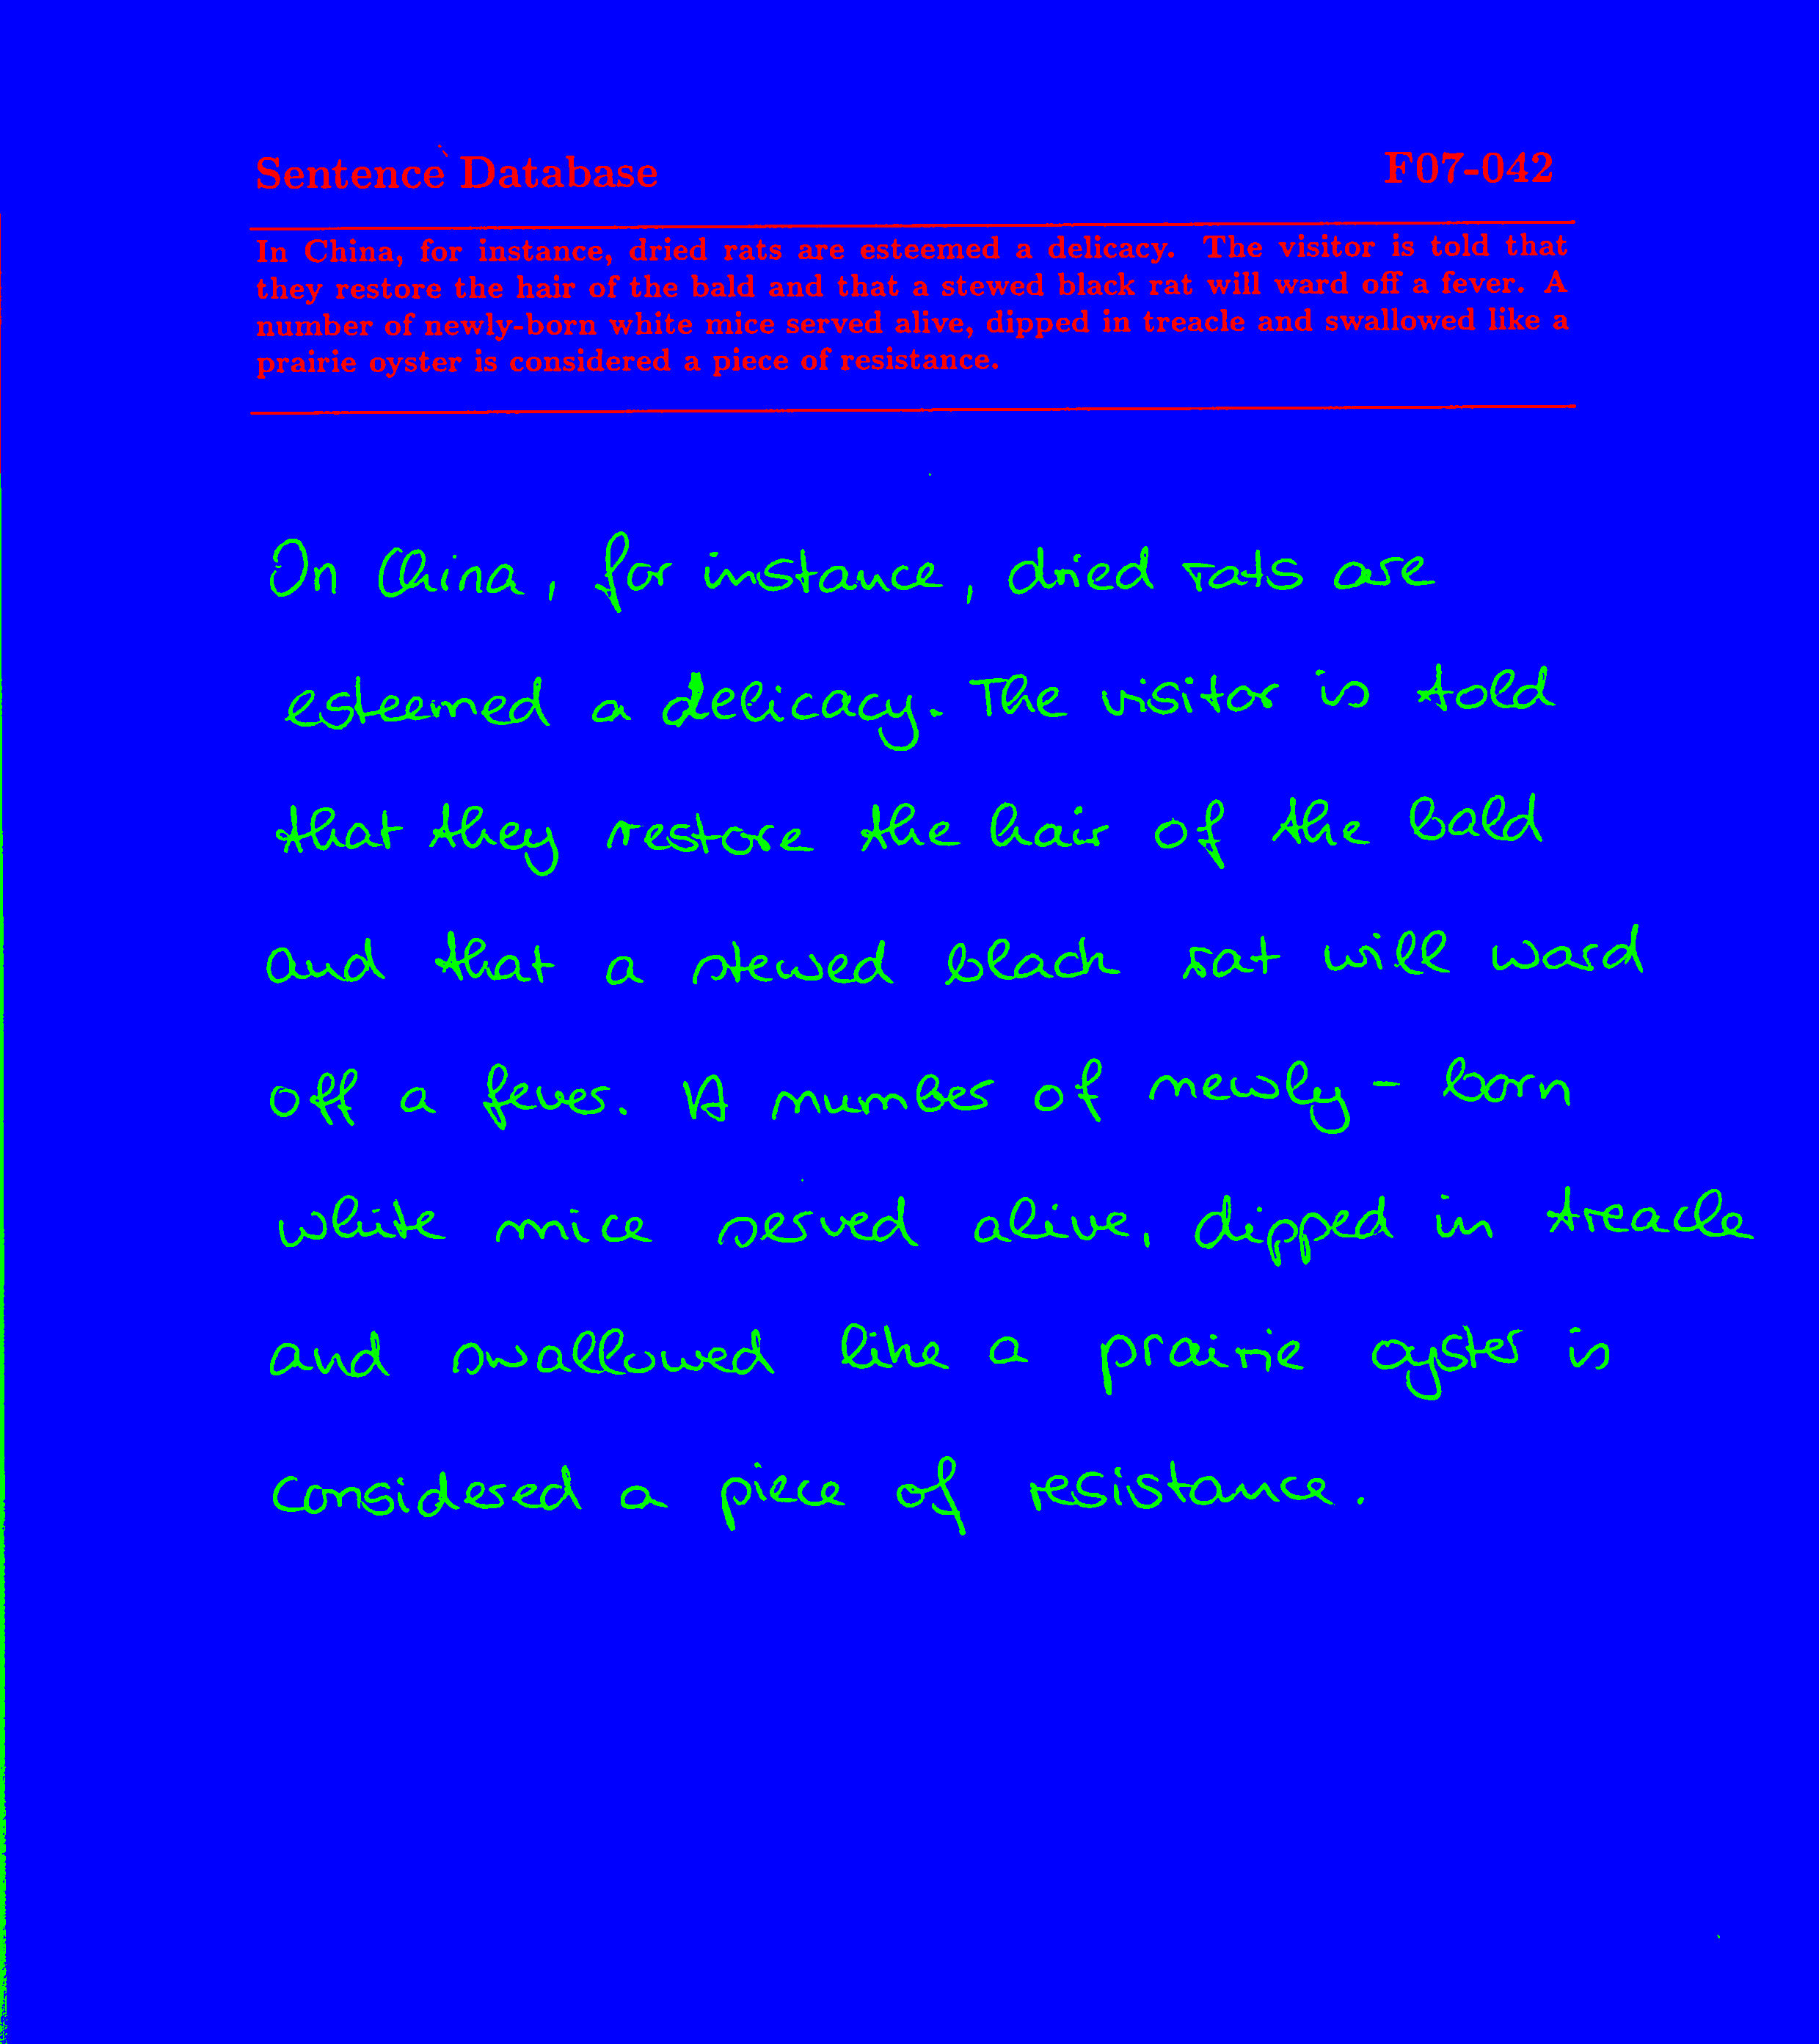 Sentence Database F07-042
In China, for instance, dried rats are esteemed a delicacy. The visitor is told that
they restore the hair of the bald and that a stewed black rat will ward off a fever. A
number of newly-born white mice served alive, dipped in treacle and swallowed like a
prairie oyster is considered a piece of resistance.
In China, for instance, dried rats are
esteemed a delicacy. The visitor is told
that they restore the hair of the bald
and that a stewed black rat will ward
off a fever. A number of newly-born
white mice served alive, dipped in treacle
and swallowed like a prairie oyster is
considered a piece of resistance.